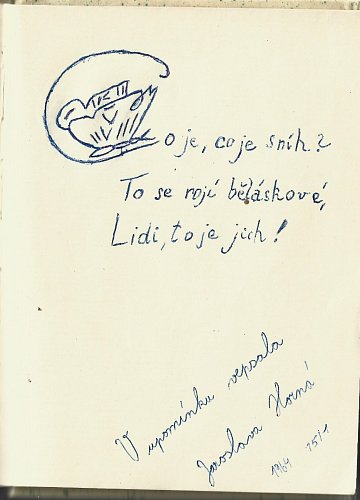 Co je, co je sníh?
To se rojí běláskové,
Lidi, to je jich!
V upomínku vepsala
Jaroslava Horná
1964 15/1